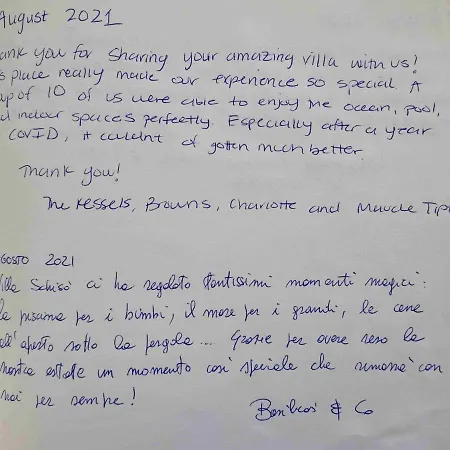 August 2021
ank you for sharing your amazing villa with us!
s place really made our experience so special. A
up of 10 of us were able to enjoy the ocean, pool,
d indoor spaces perfectly. Especially after a year
COVID, it couldn't of gotten much better.
Thank you!
The Kessels, Browns, Charlotte and Maude Tip
gosto 2021
Villa Schisò ci ha regalato tantissimi momenti magici:
la piscina per i bimbi, il mare per i grandi, le cene
all'aperto sotto la pergola... Grazie per avere reso la
nostra estate un momento così speciale che rimarrà con
noi per sempre!
& Co